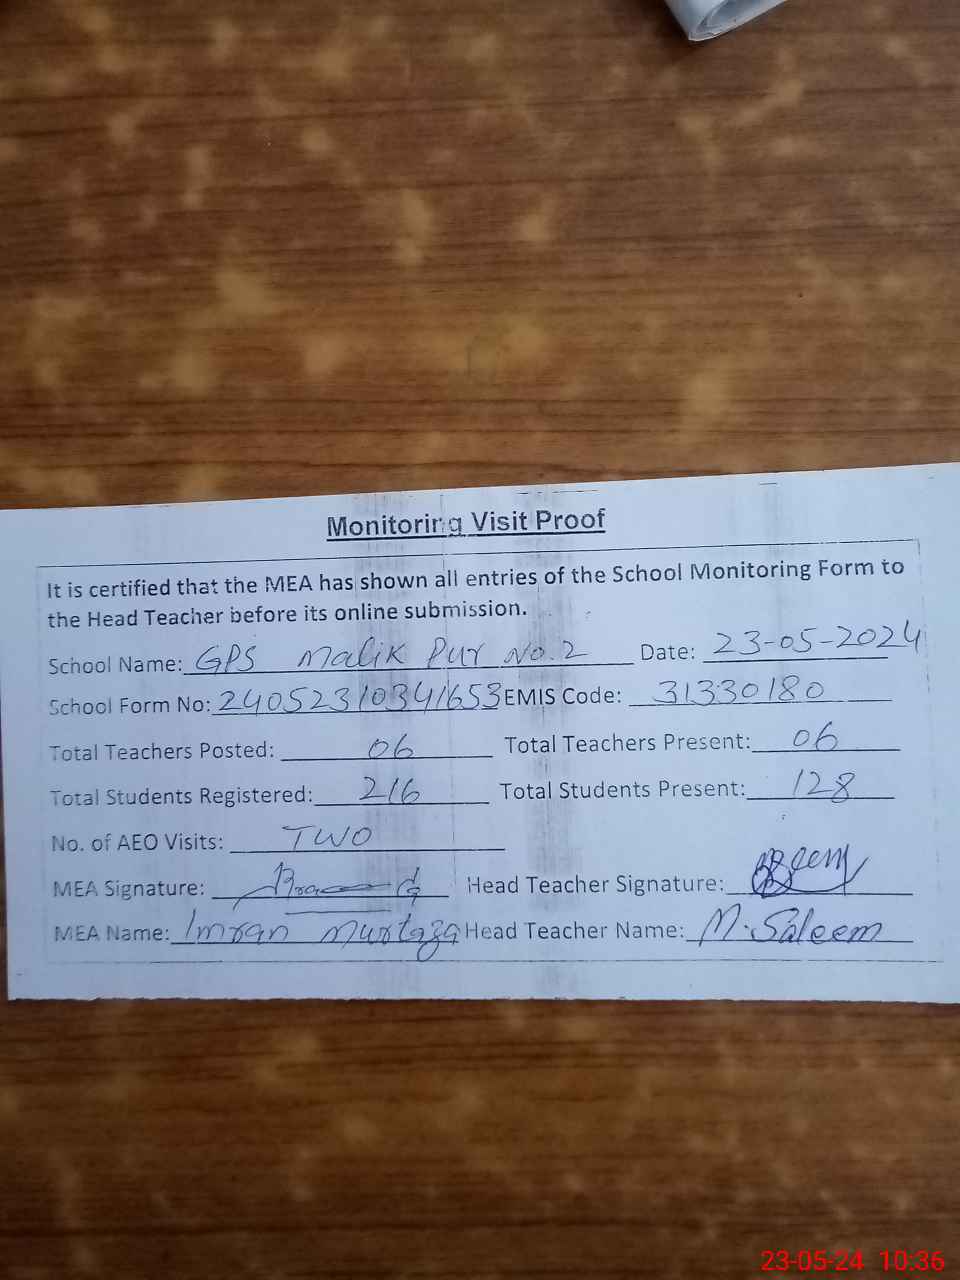 Monitoring Visit Proof
It is certified that the MEA has shown all entries of the School Monitoring Form to
the Head Teacher before its online submission.
School Name: GPS Malik Pur No.2 Date: 23-05-2024
School Form No: 24052310341653 EMIS Code: 31330180
Total Teachers Posted: 06 Total Teachers Present: 06
Total Students Registered: 216 Total Students Present: 128
No. of AEO Visits: TWO
MEA Signature: Head Teacher Signature:
MEA Name: Imran Murtaza Head Teacher Name: M. Saleem
23-05-24 10:36